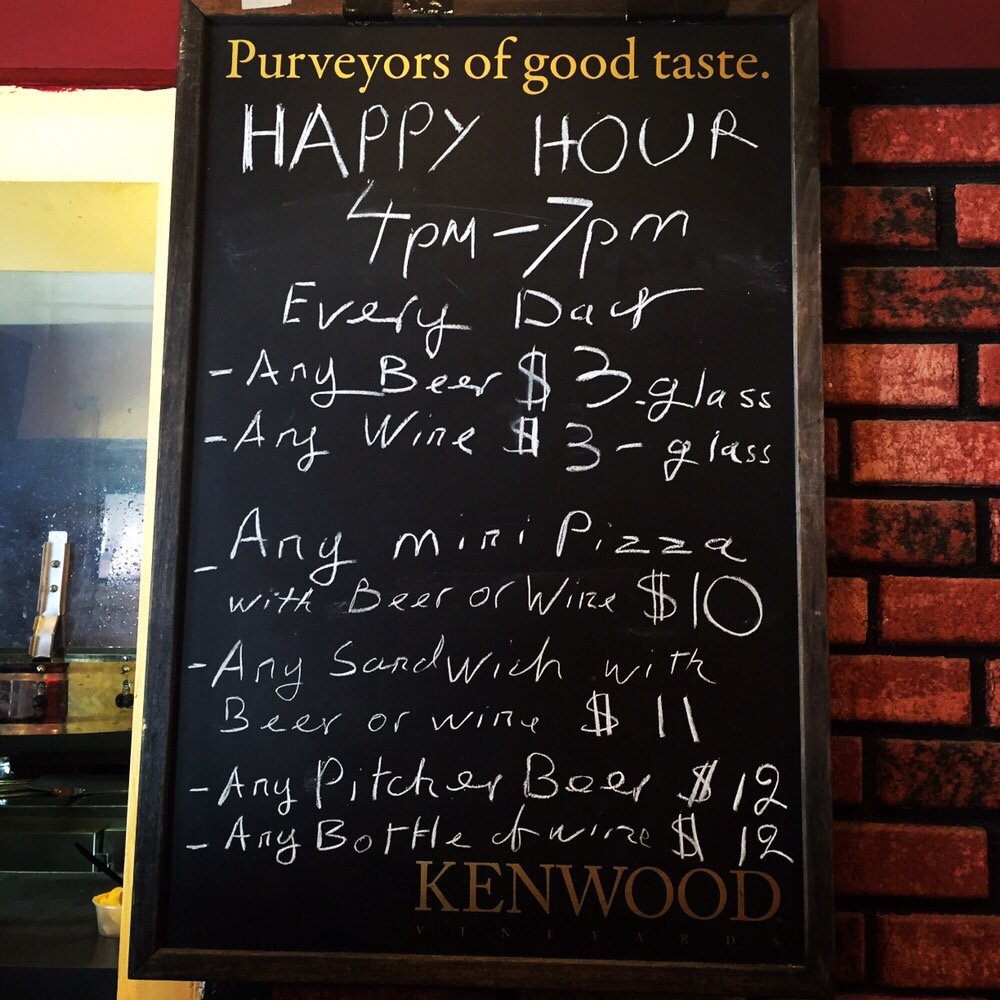 Purveyors of good taste.
HAPPY HOUR
4pm - 7pm
Every Day
- Any Beer $ 3 - glass
- Any Wine $ 3 - glass
- Any mini Pizza
with Beer or Wine $10
- Any Sandwich with
Beer or wine $ 11
- Any Pitcher Beer $ 12
- Any Bottle of wine $ 12
KENWOOD
VINEYARDS